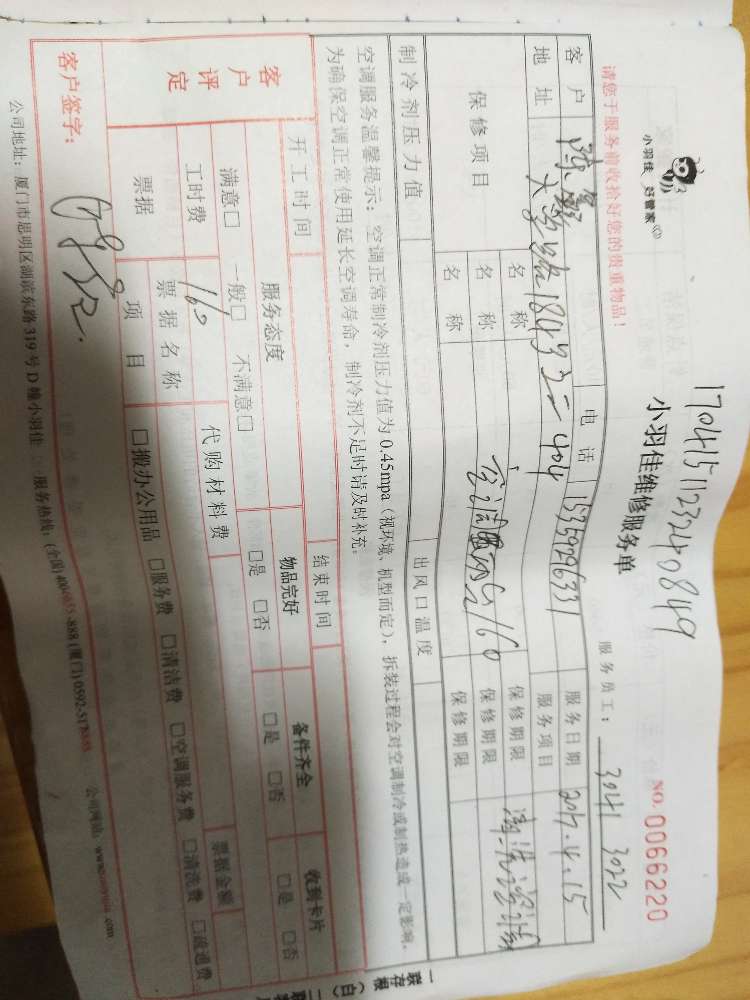 1704151123240849
小羽佳 好管家
小羽佳维修服务单
NO. 0066220
请您于服务前收拾好您的贵重物品！
服务员工： 3041 3022
客户
电话
服务日期 2017.4.15
地址
404
服务项目
保修项目
名称
保修期限
名称
160
保修期限
名称
保修期限
制冷剂压力值
出风口温度
空调服务温馨提示：空调正常制冷剂压力值为0.45mpa（视环境、机型而定），拆装过程会对空调制冷或制热造成一定影响。
为确保空调正常使用延长空调寿命，制冷剂不足时请及时补充。
开工时间
结束时间
客户评定
服务态度
物品完好
备件齐全
收到卡片
满意□ 一般□ 不满意□
□是 □否
□是 □否
□是 □否
工时费
160
代购材料费
票据
票据名称
票据金额
项目
□搬办公用品 □服务费 □清洁费 □空调服务费 □清洗费 □疏通费
客户签字：
公司地址：厦门市思明区湖滨东路319号D幢小羽佳
服务热线：(全国)400
-888(厦门)0592-517
公司网站：www.
.com
一联存根（白）二联